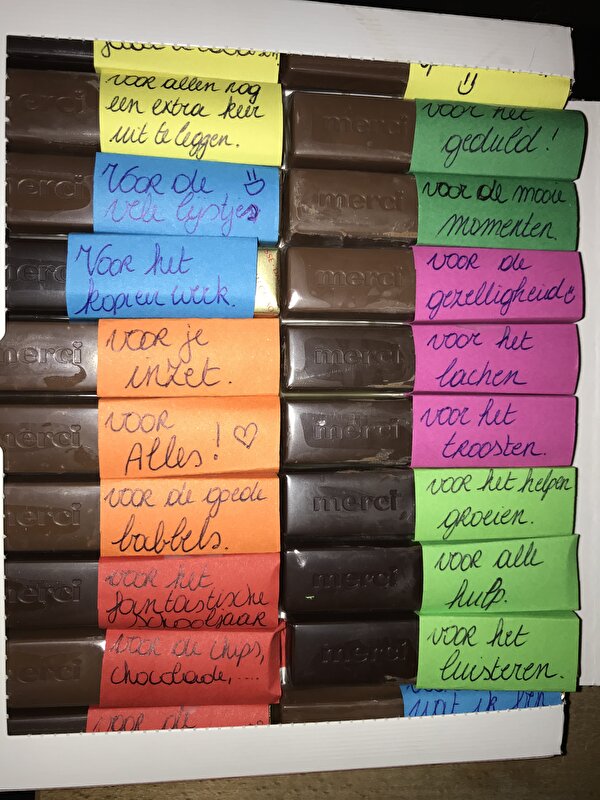 voor allen nog
een extra keer
uit te leggen.
merci
Voor de
vele lijstjes
Voor het
kopieerwerk.
merci
voor je
inzet.
merci
voor
Alles!
merci
voor de goede
babbels.
merci
voor het
fantastische
schooljaar
merci
voor de chips,
chocolade,....
voor de
voor het
geduld!
merci
voor de mooie
momenten.
merci
voor de
gezelligheid
merci
voor het
lachen
merci
voor het
troosten.
merci
voor het helpen
groeien.
merci
voor alle
hulp.
merci
voor het
luisteren.
wat ik ben